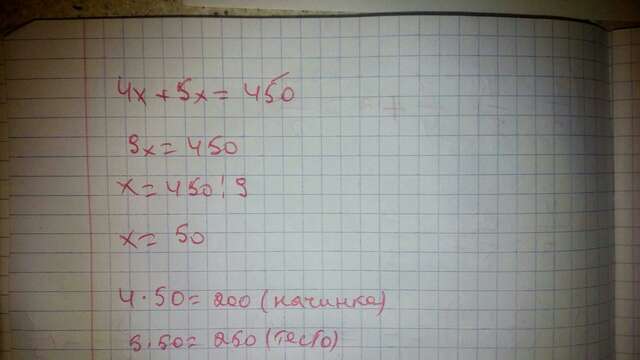 4x + 5x = 450
9x = 450
x = 450 : 9
x = 50
4 · 50 = 200 (начинка)
5 · 50 = 250 (тесто)